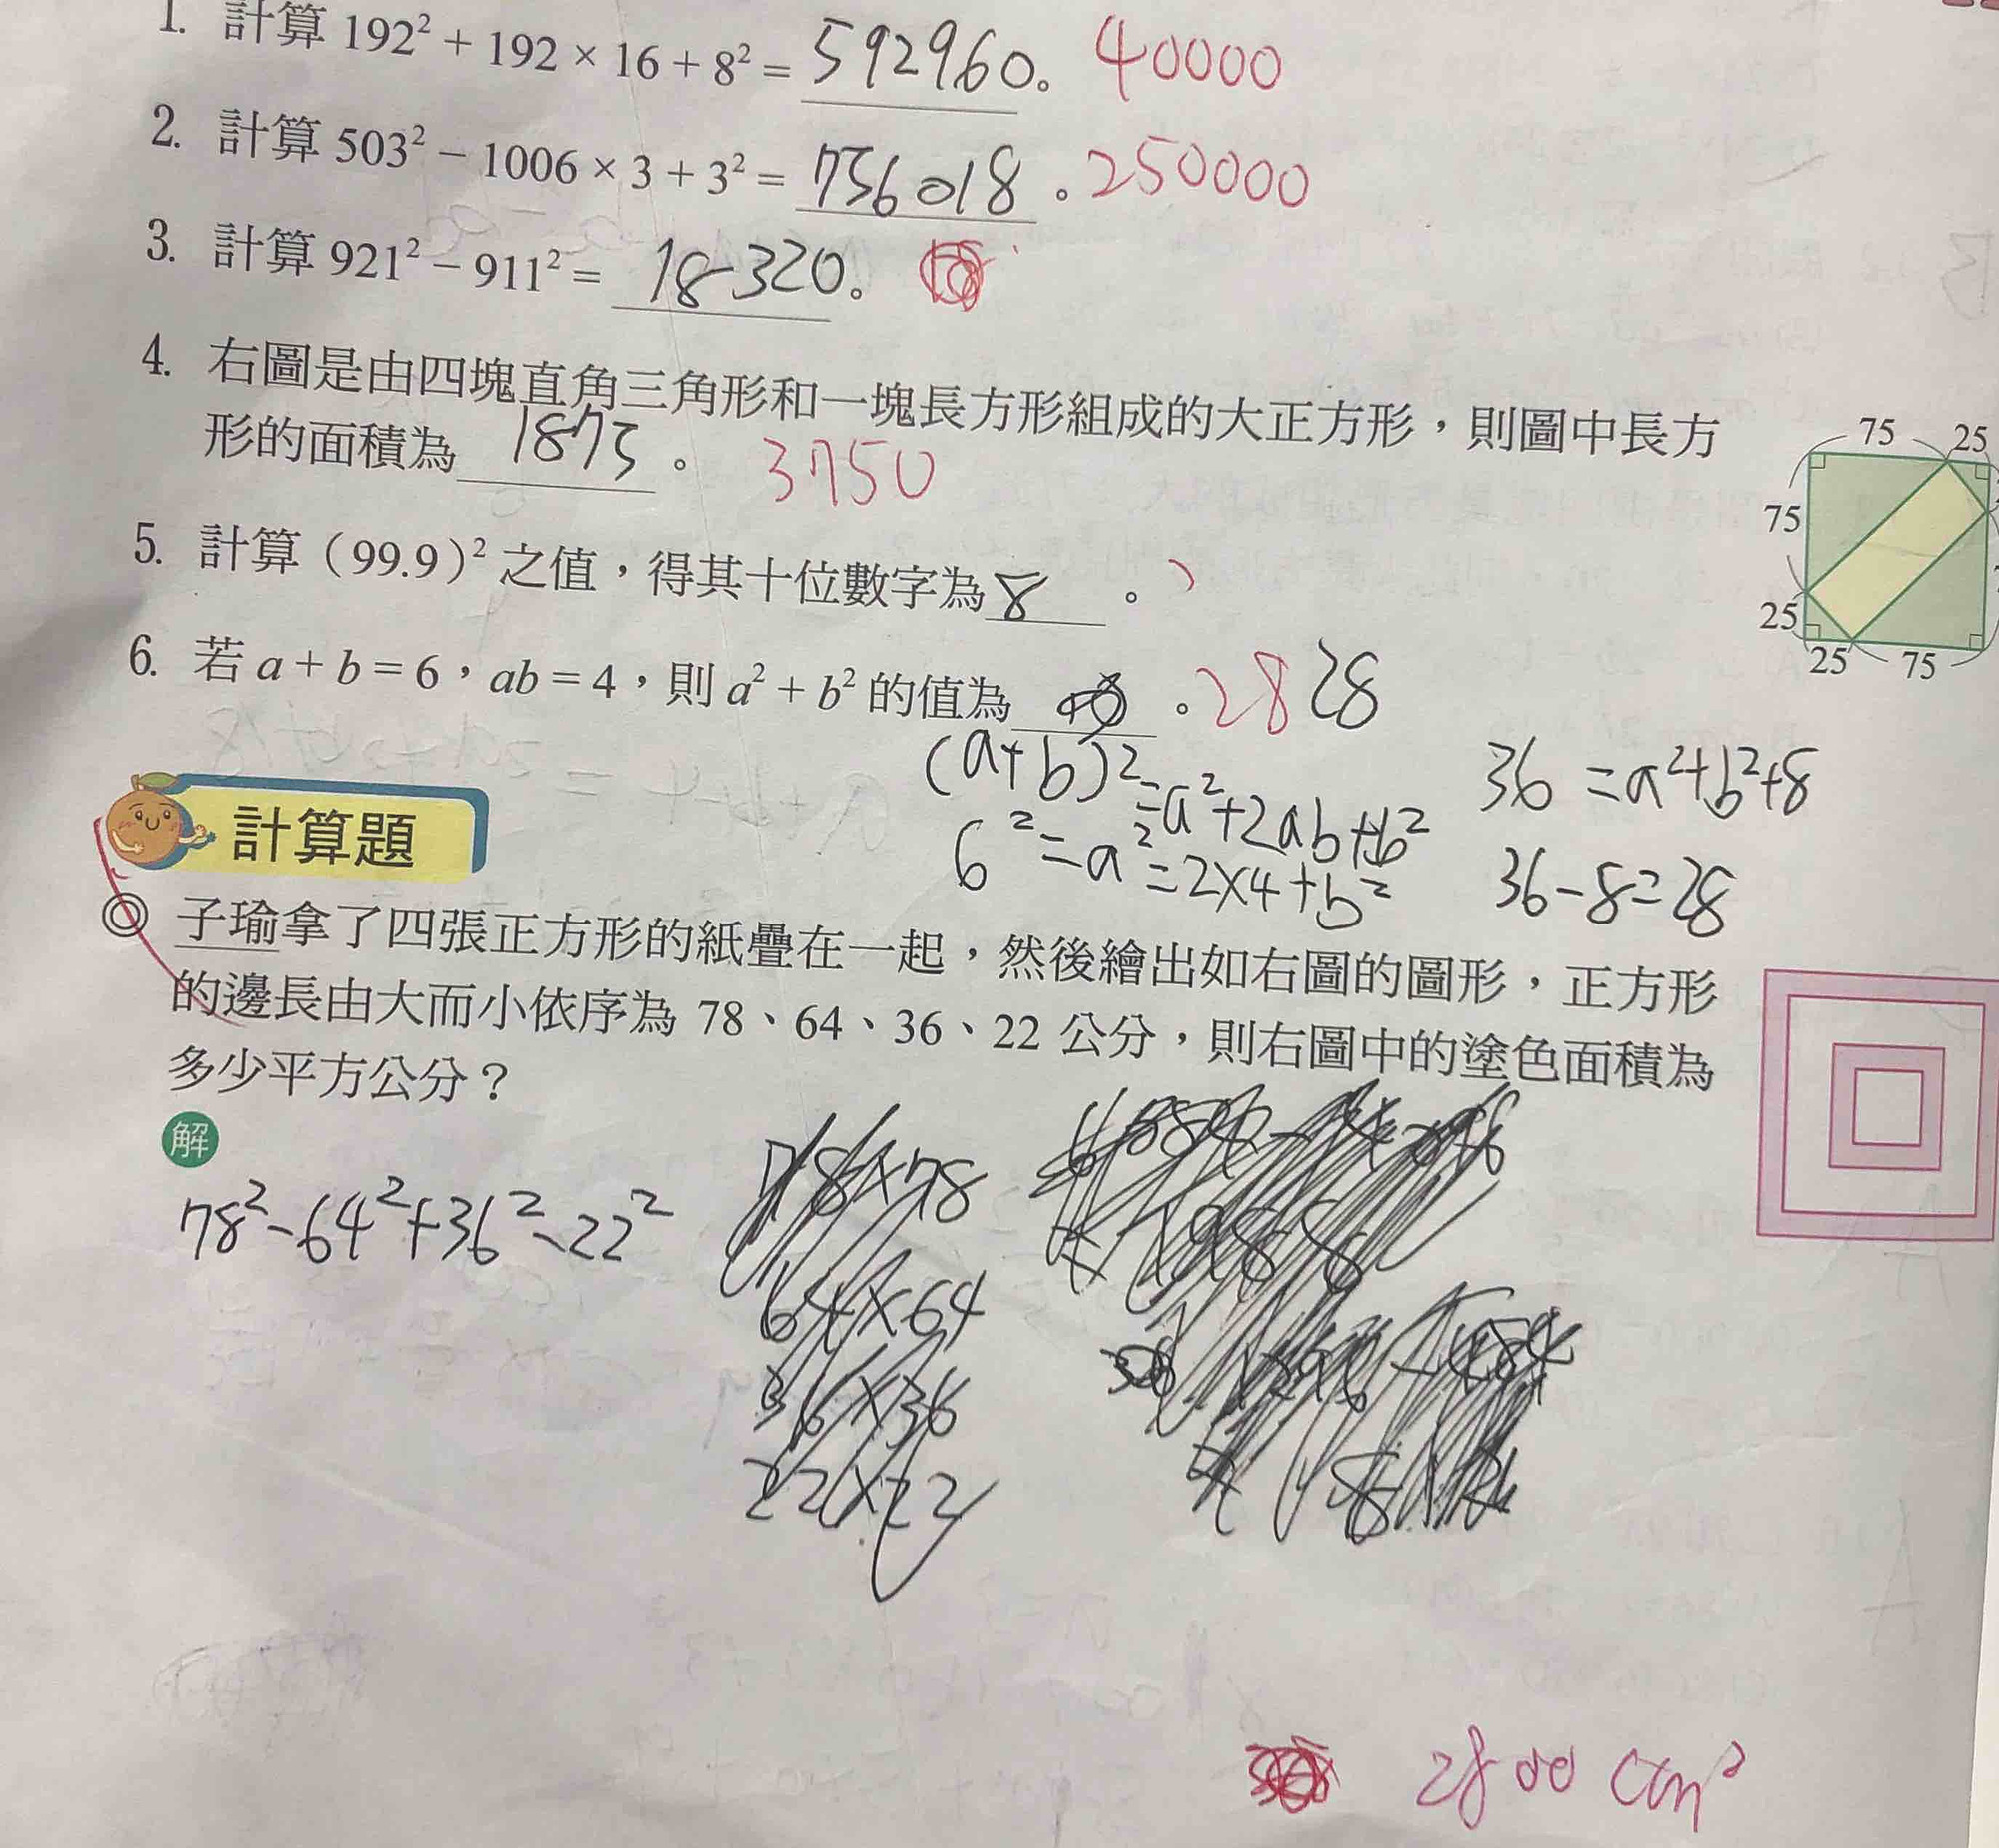 1. 計算 192² + 192 × 16 + 8² = 592960。 40000
2. 計算 503² − 1006 × 3 + 3² = 756018。 250000
3. 計算 921² − 911² = 18320。
4. 右圖是由四塊直角三角形和一塊長方形組成的大正方形，則圖中長方
形的面積為 1875。 3750
75 25
75
25
25 75
5. 計算（99.9）² 之值，得其十位數字為 8。
6. 若 a + b = 6，ab = 4，則 a² + b² 的值為 。 28 28
(a+b)² = a²+2ab+b²
6² = a² = 2×4+b²
36 = a²+b²+8
36−8=28
計算題
◎ 子瑜拿了四張正方形的紙疊在一起，然後繪出如右圖的圖形，正方形
的邊長由大而小依序為 78、64、36、22 公分，則右圖中的塗色面積為
多少平方公分？
解
78²−64²+36²−22²
78×78
64×64
36×36
22×22
2800 cm²